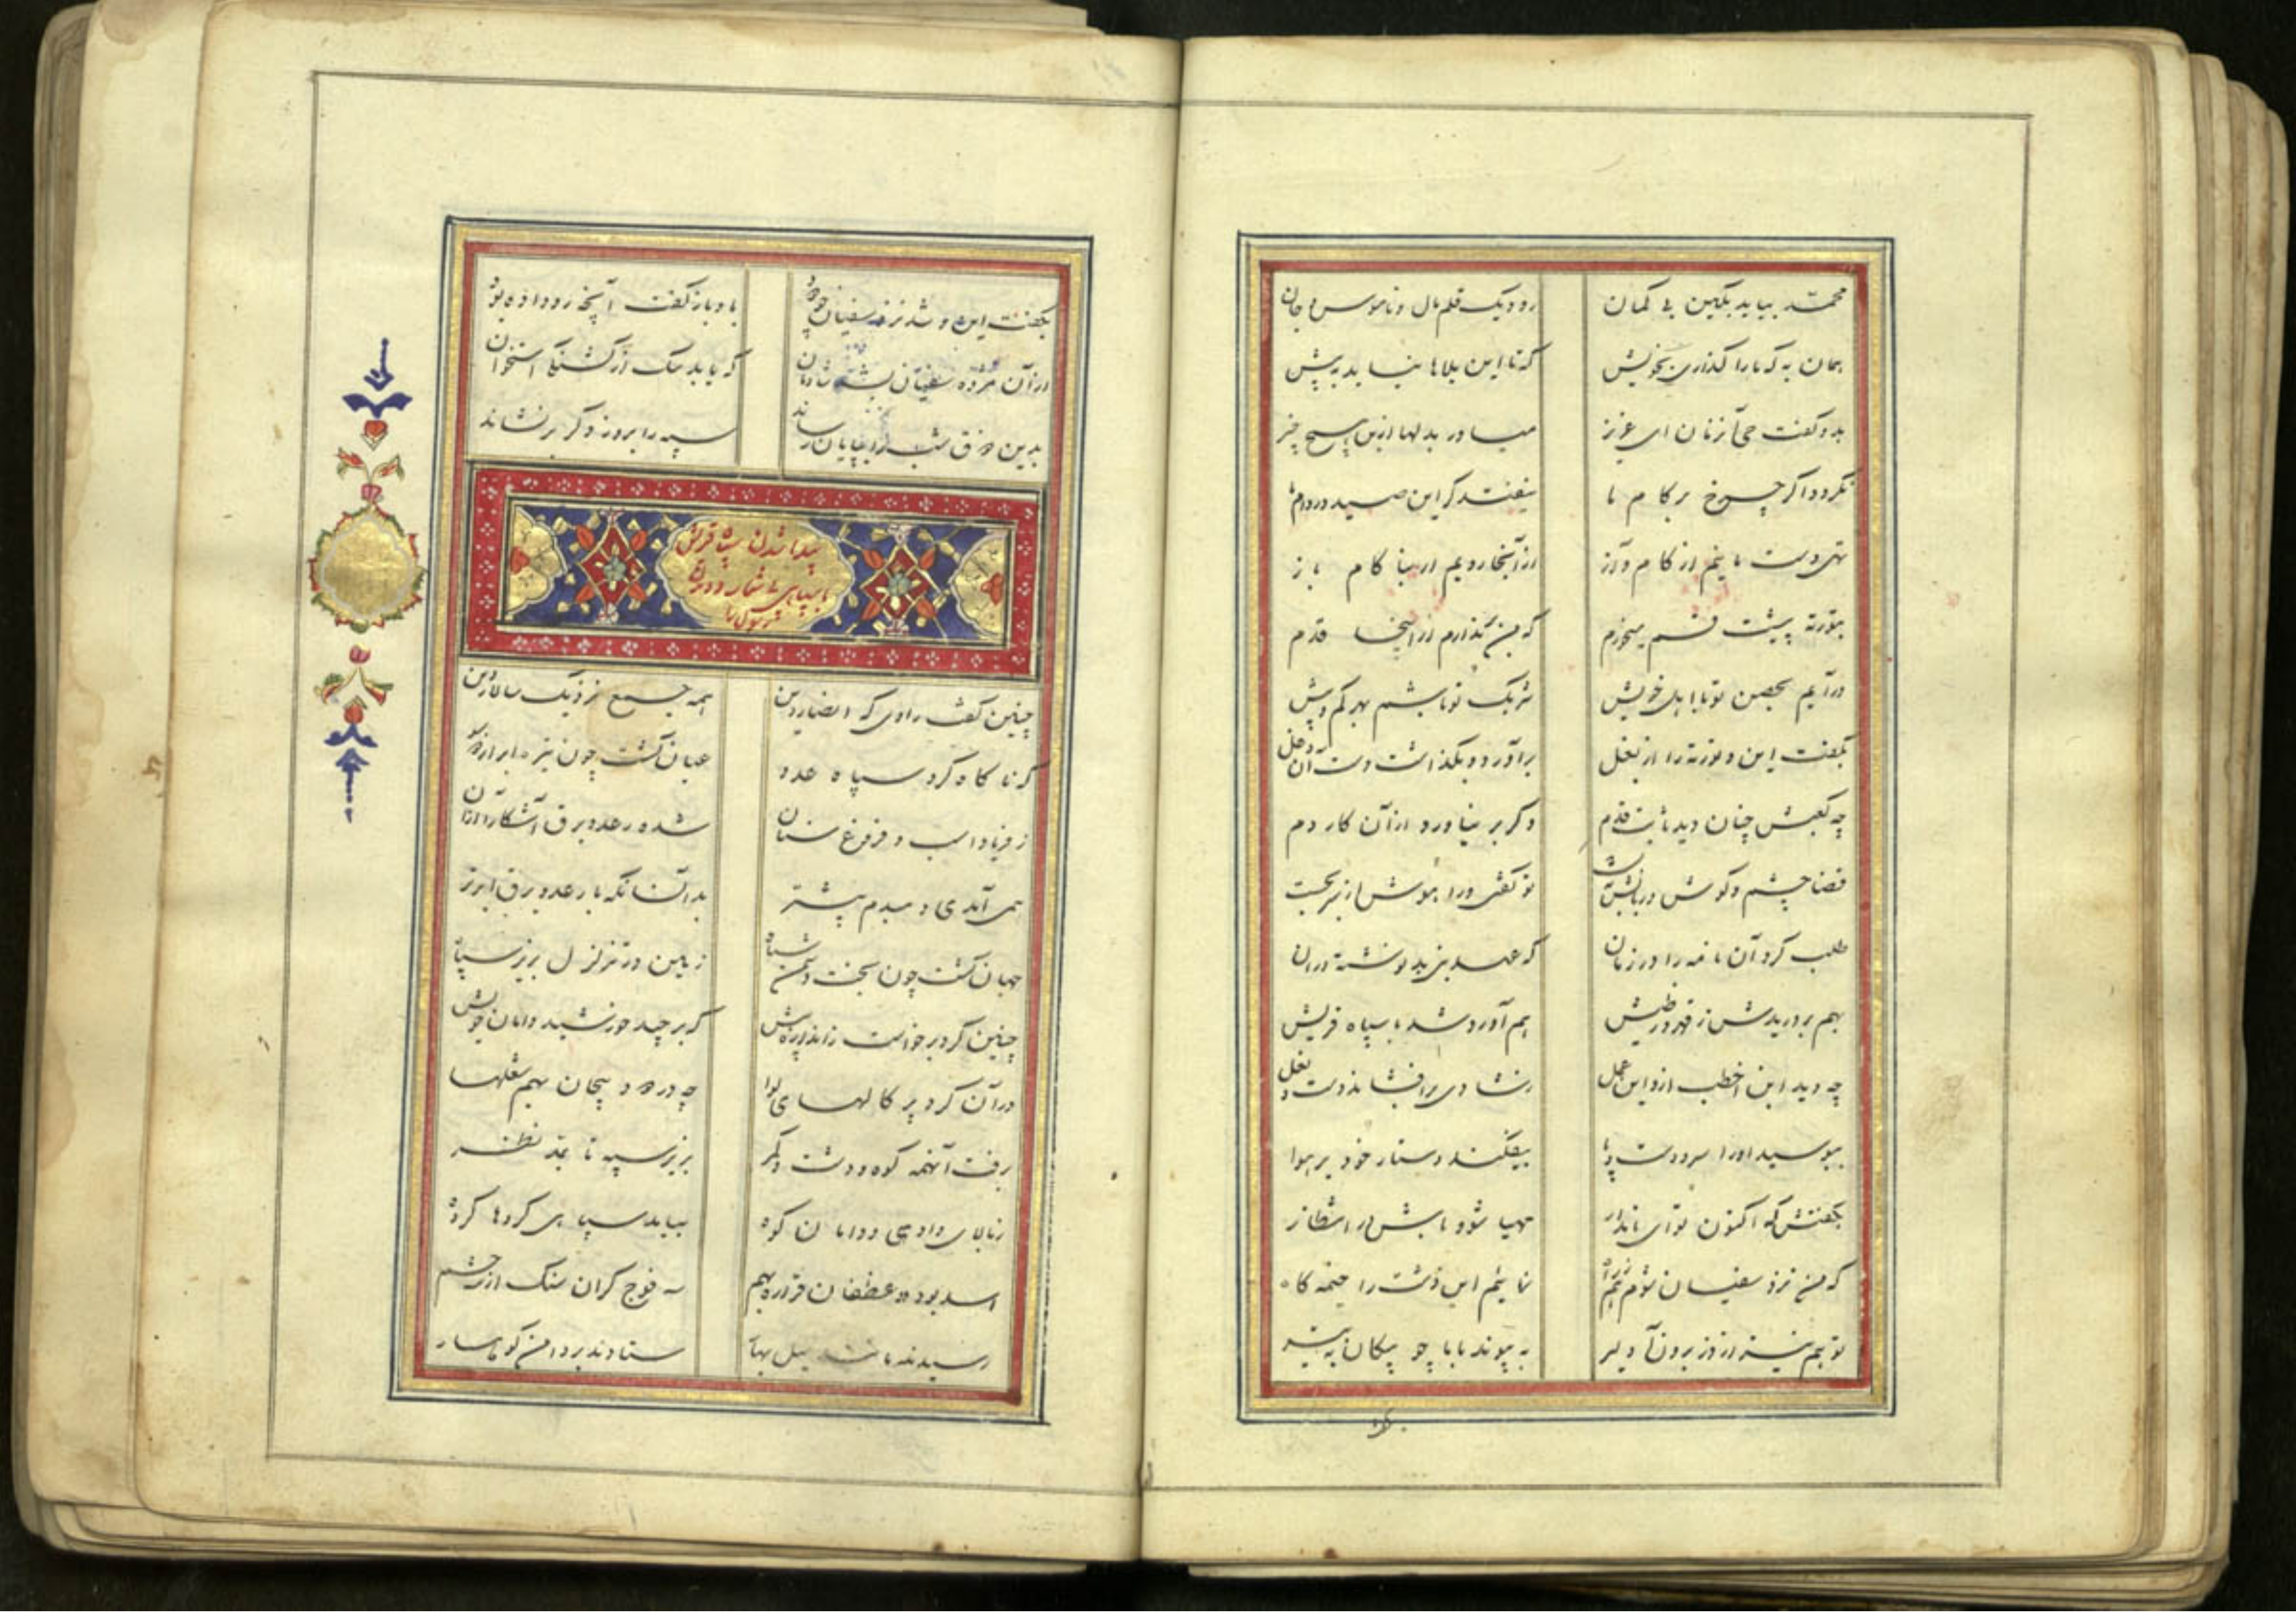 محمد بیاید بکین بی کمان رود یک قلم مال و ناموس و جان
همان به که ما را گذاری بخویش که تا این بلاها نیاید به پیش
بدو کفت حی آنزمان ای عزیز میاور بدلها ازین هیچ چیز
نکردد اکر چرخ بر کام ما نیفتد کر این صید در دام ما
تهی دست مانیم از کام و آز از آنجا رویم ار بنا کام باز
بتورته پیشت قسم میخورم که من نگذارم از اینجا قدم
درآیم بحصن تو با اهل خویش شریک تو باشم بهر کم و بیش
بکفت این و تورته را از بغل برآورد و بکذاشت دست آن دغل
چه کعبش چنان دید ثابت قدم دکر بر نیاورد از آن کار دم
قضا چشم و کوش در بست
طلب کرد آن نامه را در زمان که عهد نبی بد نوشته در آن
بهم بر دریدش ز قهر و ز طیش هم آورد شد با سپاه قریش
چه دید ابن اخطب ازو این عمل ز شادی برافشاند دست و بغل
ببوسید او را سر و دست و پا بیفکند دستار خود بر هوا
بکفتش که اکنون تو ای نامدار مهیا شو و باش در انتظار
که من نزد سفیان شوم نمایم این دشت را خیمه کاه
تو هم نیز از دز برون آ دلیر به پیوند با ما چو پیکان به تیر
بکفت این و شد نزد سفیان چو دود باو باز کفت آنچه رو داده بود
از آن مژده سفیان بشد شادمان که یابد سک از کشنکی استخوان
بدین ذوق شب را بپایان رساند سپه را بروز دکر بر نشاند
پیدا شدن سپاه قریش
با سپاهی بی شمار و
چنین کفت راوی که انصار دین همه جمع نزدیک سالار دین
که ناکاه کرد سپاه عدو عیان کشت چون تیره ابر از
ز فریاد اسب و فروغ سنان شده رعد و برق آشکارا از آن
همی آمدی دمبدم پیشتر بدانسانکه با رعد و برق ابر تر
جهان کشت چون بخت دشمن سیاه زمین در تزلزل بزیر سپاه
چنین کرد برخواست ز اندازه بیش که برچید خورشید دامان خویش
در آن کرد پرکالهای لوا چه در دود پیچان بهم شعلها
برفت آنهمه کوه و دشت و کمر بزیر سپه تا بمد نظر
ز بالای وادی و دامان کوه بیامد سپاهی کروها کروه
اسد بود و غطفان فزاره بهم سه فوج کران سنک از
رسیدند مانند سیل بهار ستادند بر دامن کوهسار